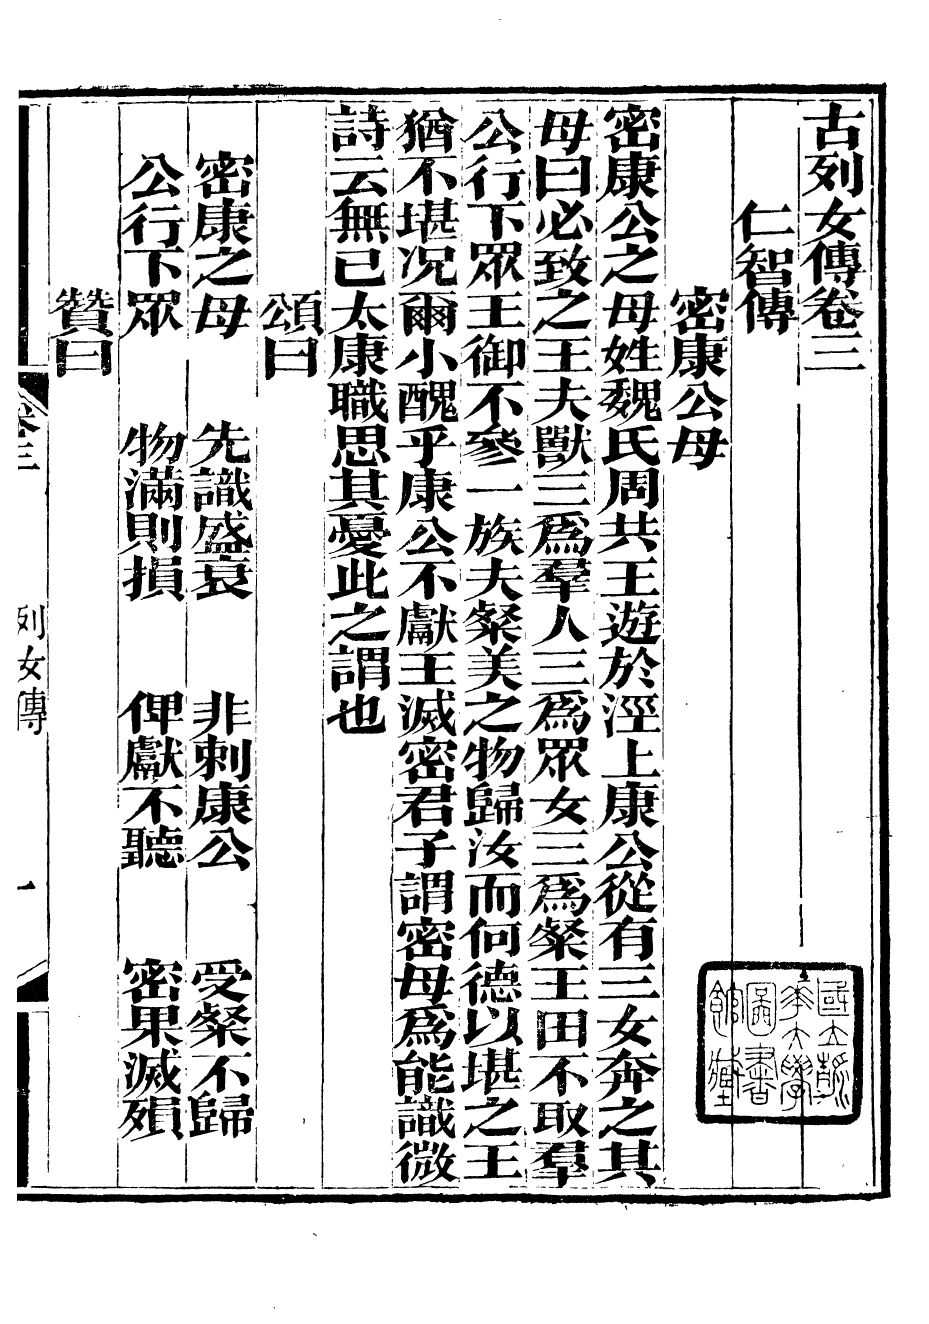 古列女傳卷三
仁智傳
密康公母
密康公之母姓魏氏周共王遊於涇上康公從有三女奔之其
母曰必致之王夫獸三爲羣人三爲眾女三爲粲王田不取羣
公行下眾王御不參一族夫粲美之物歸汝而何德以堪之王
猶不堪况爾小醜乎康公不獻王滅密君子謂密母爲能識微
詩云無已太康職思其憂此之謂也
頌曰
密康之母 先識盛衰 非刺康公 受粲不歸
公行下眾 物滿則損 俾獻不聽 密果滅殞
贊曰
卷三 列女傳 一
國立清華大學圖書館藏